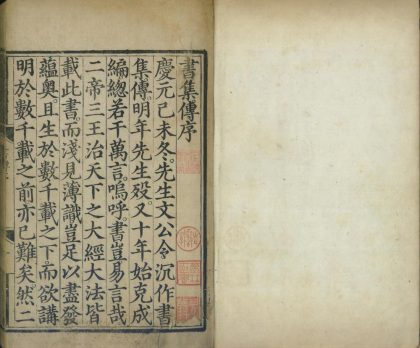 書集傳序
慶元己未冬先生文公令沉作書
集傳明年先生殁又十年始克成
編總若干萬言嗚呼書豈易言哉
二帝三王治天下之大經大法皆
載此書而淺見薄識豈足以盡發
蘊奥且生於數千載之下而欲講
明於數千載之前亦已難矣然二